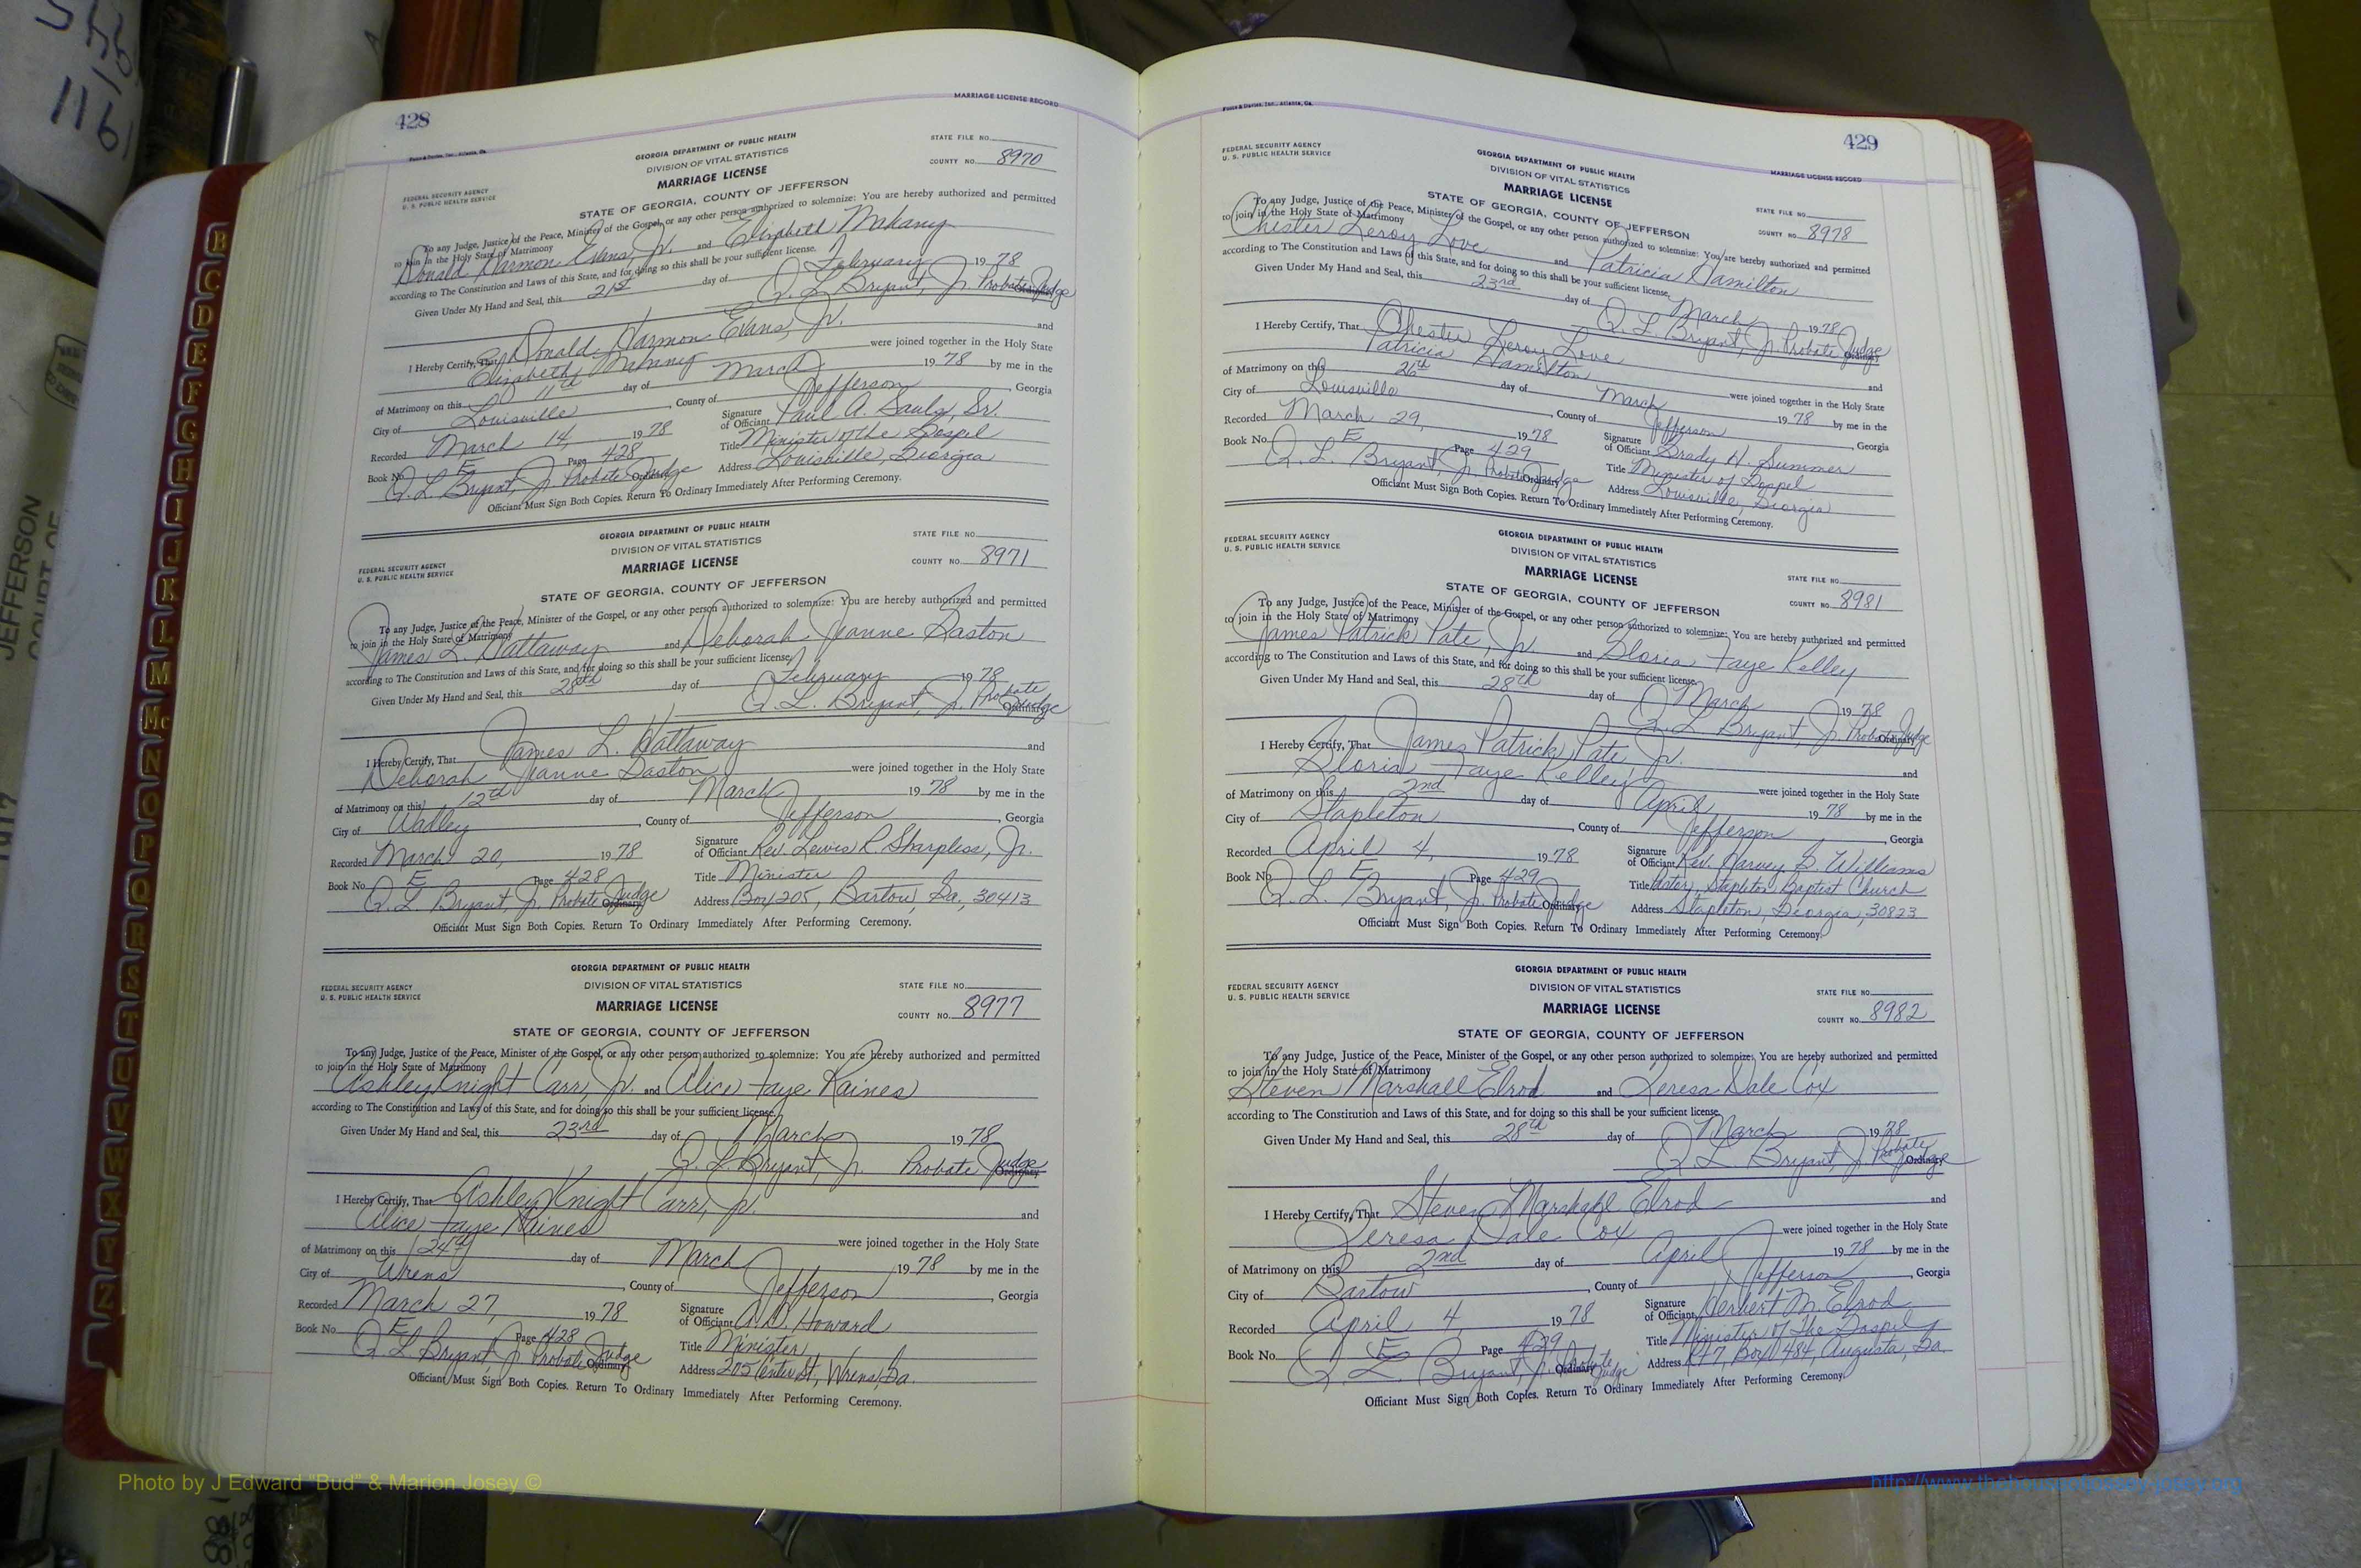 428
MARRIAGE LICENSE RECORD
GEORGIA DEPARTMENT OF PUBLIC HEALTH
DIVISION OF VITAL STATISTICS
MARRIAGE LICENSE
STATE OF GEORGIA, COUNTY OF JEFFERSON
FEDERAL SECURITY AGENCY
U. S. PUBLIC HEALTH SERVICE
STATE FILE NO.
COUNTY NO. 8970
To any Judge, Justice of the Peace, Minister of the Gospel, or any other person authorized to solemnize: You are hereby authorized and permitted
to join in the Holy State of Matrimony
Donald Harmon Evans, Jr. and Elizabeth Mahaney
according to The Constitution and Laws of this State, and for doing so this shall be your sufficient license.
Given Under My Hand and Seal, this 21st day of February 1978
Q. L. Bryant, Jr. Probate Judge Ordinary
I Hereby Certify, That Donald Harmon Evans, Jr. and
Elizabeth Mahaney were joined together in the Holy State
of Matrimony on this 11th day of March 1978 by me in the
City of Louisville, County of Jefferson, Georgia
Recorded March 14, 1978 Signature of Officiant Paul A. Sauls, Sr.
Book No. E Page 428 Title Minister of the Gospel
Q. L. Bryant, Jr. Probate Judge Ordinary Address Louisville, Georgia
Officiant Must Sign Both Copies. Return To Ordinary Immediately After Performing Ceremony.
GEORGIA DEPARTMENT OF PUBLIC HEALTH
DIVISION OF VITAL STATISTICS
MARRIAGE LICENSE
STATE OF GEORGIA, COUNTY OF JEFFERSON
FEDERAL SECURITY AGENCY
U. S. PUBLIC HEALTH SERVICE
STATE FILE NO.
COUNTY NO. 8971
To any Judge, Justice of the Peace, Minister of the Gospel, or any other person authorized to solemnize: You are hereby authorized and permitted
to join in the Holy State of Matrimony
James L. Hattaway and Deborah Jeanne Gaston
according to The Constitution and Laws of this State, and for doing so this shall be your sufficient license.
Given Under My Hand and Seal, this 28th day of February 1978
Q. L. Bryant, Jr. Probate Judge Ordinary
I Hereby Certify, That James L. Hattaway and
Deborah Jeanne Gaston were joined together in the Holy State
of Matrimony on this 12th day of March 1978 by me in the
City of Wadley, County of Jefferson, Georgia
Recorded March 20, 1978 Signature of Officiant Rev. Lewis R. Sharpless, Jr.
Book No. E Page 428 Title Minister
Q. L. Bryant, Jr. Probate Judge Ordinary Address Box 205, Bartow, Ga., 30413
Officiant Must Sign Both Copies. Return To Ordinary Immediately After Performing Ceremony.
GEORGIA DEPARTMENT OF PUBLIC HEALTH
DIVISION OF VITAL STATISTICS
MARRIAGE LICENSE
STATE OF GEORGIA, COUNTY OF JEFFERSON
FEDERAL SECURITY AGENCY
U. S. PUBLIC HEALTH SERVICE
STATE FILE NO.
COUNTY NO. 8977
To any Judge, Justice of the Peace, Minister of the Gospel, or any other person authorized to solemnize: You are hereby authorized and permitted
to join in the Holy State of Matrimony
Ashley Knight Carr, Jr. and Alice Faye Raines
according to The Constitution and Laws of this State, and for doing so this shall be your sufficient license.
Given Under My Hand and Seal, this 23rd day of March 1978
Q. L. Bryant, Jr. Probate Judge Ordinary
I Hereby Certify, That Ashley Knight Carr, Jr. and
Alice Faye Raines were joined together in the Holy State
of Matrimony on this 24th day of March 1978 by me in the
City of Wrens, County of Jefferson, Georgia
Recorded March 27, 1978 Signature of Officiant A. D. Howard
Book No. E Page 428 Title Minister
Q. L. Bryant, Jr. Probate Judge Ordinary Address 205 Center St, Wrens, Ga.
Officiant Must Sign Both Copies. Return To Ordinary Immediately After Performing Ceremony.
429
MARRIAGE LICENSE RECORD
GEORGIA DEPARTMENT OF PUBLIC HEALTH
DIVISION OF VITAL STATISTICS
MARRIAGE LICENSE
STATE OF GEORGIA, COUNTY OF JEFFERSON
FEDERAL SECURITY AGENCY
U. S. PUBLIC HEALTH SERVICE
STATE FILE NO.
COUNTY NO. 8978
To any Judge, Justice of the Peace, Minister of the Gospel, or any other person authorized to solemnize: You are hereby authorized and permitted
to join in the Holy State of Matrimony
Chester Leroy Love and Patricia Hamilton
according to The Constitution and Laws of this State, and for doing so this shall be your sufficient license.
Given Under My Hand and Seal, this 23rd day of March 1978
Q. L. Bryant, Jr. Probate Judge Ordinary
I Hereby Certify, That Chester Leroy Love and
Patricia Hamilton were joined together in the Holy State
of Matrimony on this 26th day of March 1978 by me in the
City of Louisville, County of Jefferson, Georgia
Recorded March 29, 1978 Signature of Officiant Grady H. Summer
Book No. E Page 429 Title Minister of Gospel
Q. L. Bryant, Jr. Probate Judge Ordinary Address Louisville, Georgia
Officiant Must Sign Both Copies. Return To Ordinary Immediately After Performing Ceremony.
GEORGIA DEPARTMENT OF PUBLIC HEALTH
DIVISION OF VITAL STATISTICS
MARRIAGE LICENSE
STATE OF GEORGIA, COUNTY OF JEFFERSON
FEDERAL SECURITY AGENCY
U. S. PUBLIC HEALTH SERVICE
STATE FILE NO.
COUNTY NO. 8981
To any Judge, Justice of the Peace, Minister of the Gospel, or any other person authorized to solemnize: You are hereby authorized and permitted
to join in the Holy State of Matrimony
James Patrick Pate, Jr. and Gloria Faye Kelley
according to The Constitution and Laws of this State, and for doing so this shall be your sufficient license.
Given Under My Hand and Seal, this 28th day of March 1978
Q. L. Bryant, Jr. Probate Judge Ordinary
I Hereby Certify, That James Patrick Pate Jr. and
Gloria Faye Kelley were joined together in the Holy State
of Matrimony on this 2nd day of April 1978 by me in the
City of Stapleton, County of Jefferson, Georgia
Recorded April 4, 1978 Signature of Officiant Rev. Harvey B. Williams
Book No. E Page 429 Title Pastor, Stapleton Baptist Church
Q. L. Bryant, Jr. Probate Judge Ordinary Address Stapleton, Georgia, 30823
Officiant Must Sign Both Copies. Return To Ordinary Immediately After Performing Ceremony.
GEORGIA DEPARTMENT OF PUBLIC HEALTH
DIVISION OF VITAL STATISTICS
MARRIAGE LICENSE
STATE OF GEORGIA, COUNTY OF JEFFERSON
FEDERAL SECURITY AGENCY
U. S. PUBLIC HEALTH SERVICE
STATE FILE NO.
COUNTY NO. 8982
To any Judge, Justice of the Peace, Minister of the Gospel, or any other person authorized to solemnize: You are hereby authorized and permitted
to join in the Holy State of Matrimony
Steven Marshall Elrod and Teresa Dale Cox
according to The Constitution and Laws of this State, and for doing so this shall be your sufficient license.
Given Under My Hand and Seal, this 28th day of March 1978
Q. L. Bryant, Jr. Probate Judge Ordinary
I Hereby Certify, That Steven Marshall Elrod and
Teresa Dale Cox were joined together in the Holy State
of Matrimony on this 2nd day of April 1978 by me in the
City of Bartow, County of Jefferson, Georgia
Recorded April 4 1978 Signature of Officiant Herbert M. Elrod
Book No. E Page 429 Title Minister of The Gospel
Q. L. Bryant, Jr. Probate Judge Ordinary Address Rt 7, Box 484, Augusta, Ga.
Officiant Must Sign Both Copies. Return To Ordinary Immediately After Performing Ceremony.
B
C
D
E
F
G
H
I
J
K
L
M
Mc
N
O
P
Q
R
S
T
U
V
W
X
Y
Z
JEFFERSON
COURT OF
Photo by J Edward "Bud" & Marion Josey ©